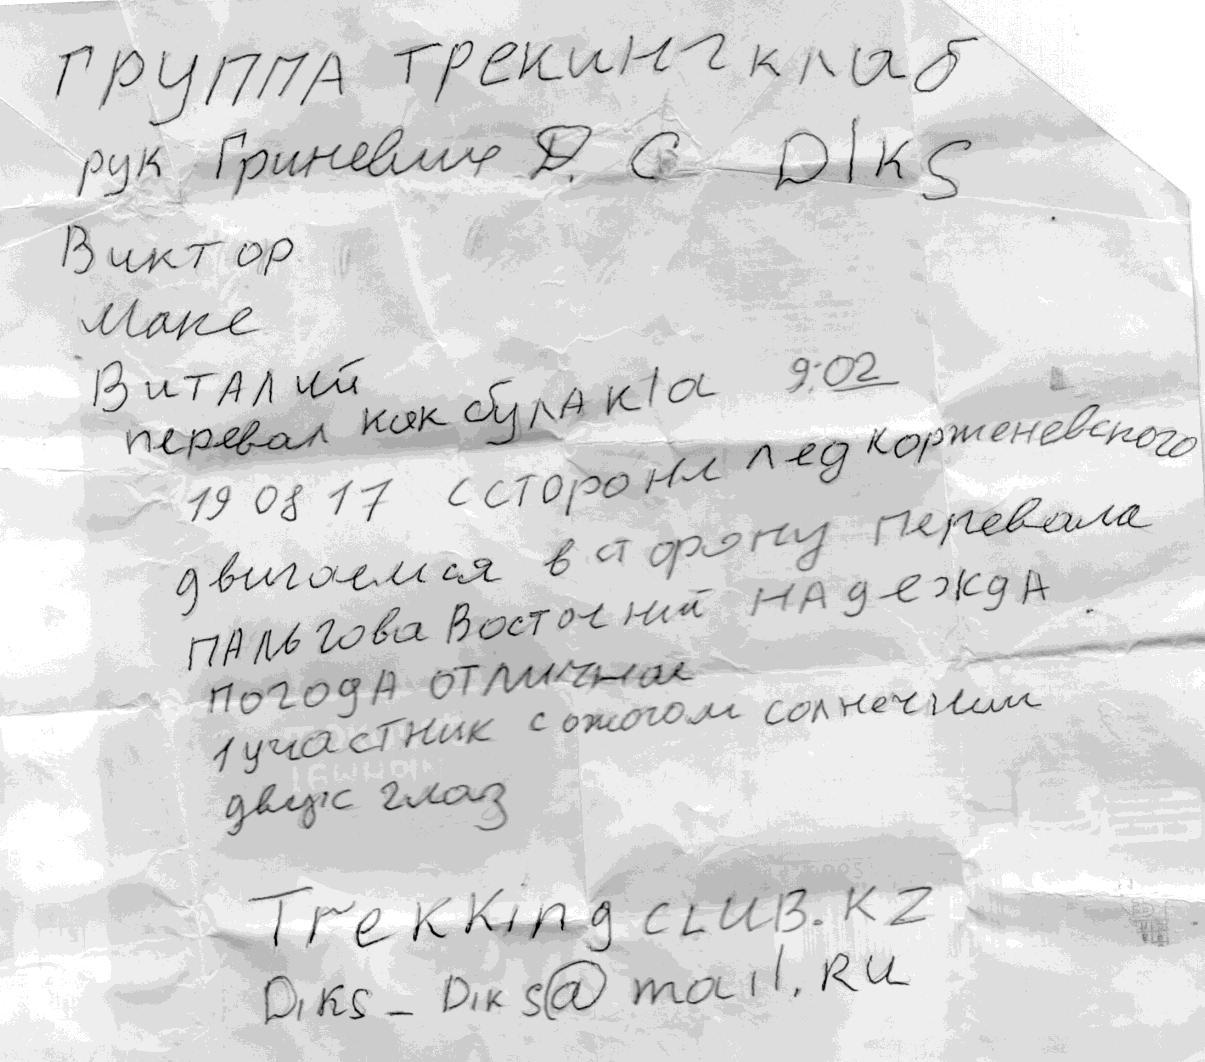 ГРУППА ТРЕКИНГ клаб
рук Гриневич Д. С DIKS
Виктор
Макс
ВИТАЛИЙ
перевал кокбулак 1а 9:02
19 08 17 с стороны лед корженевского
двигаемся в сторону перевала
ПАЛЬГОВА Восточний НАДЕЖДА.
ПОГОДА ОТЛИЧНАЯ
1 участник с ожогом солнечним
двух глаз
Trekking CLUB.KZ
DIKS_DIKS@mail.RU